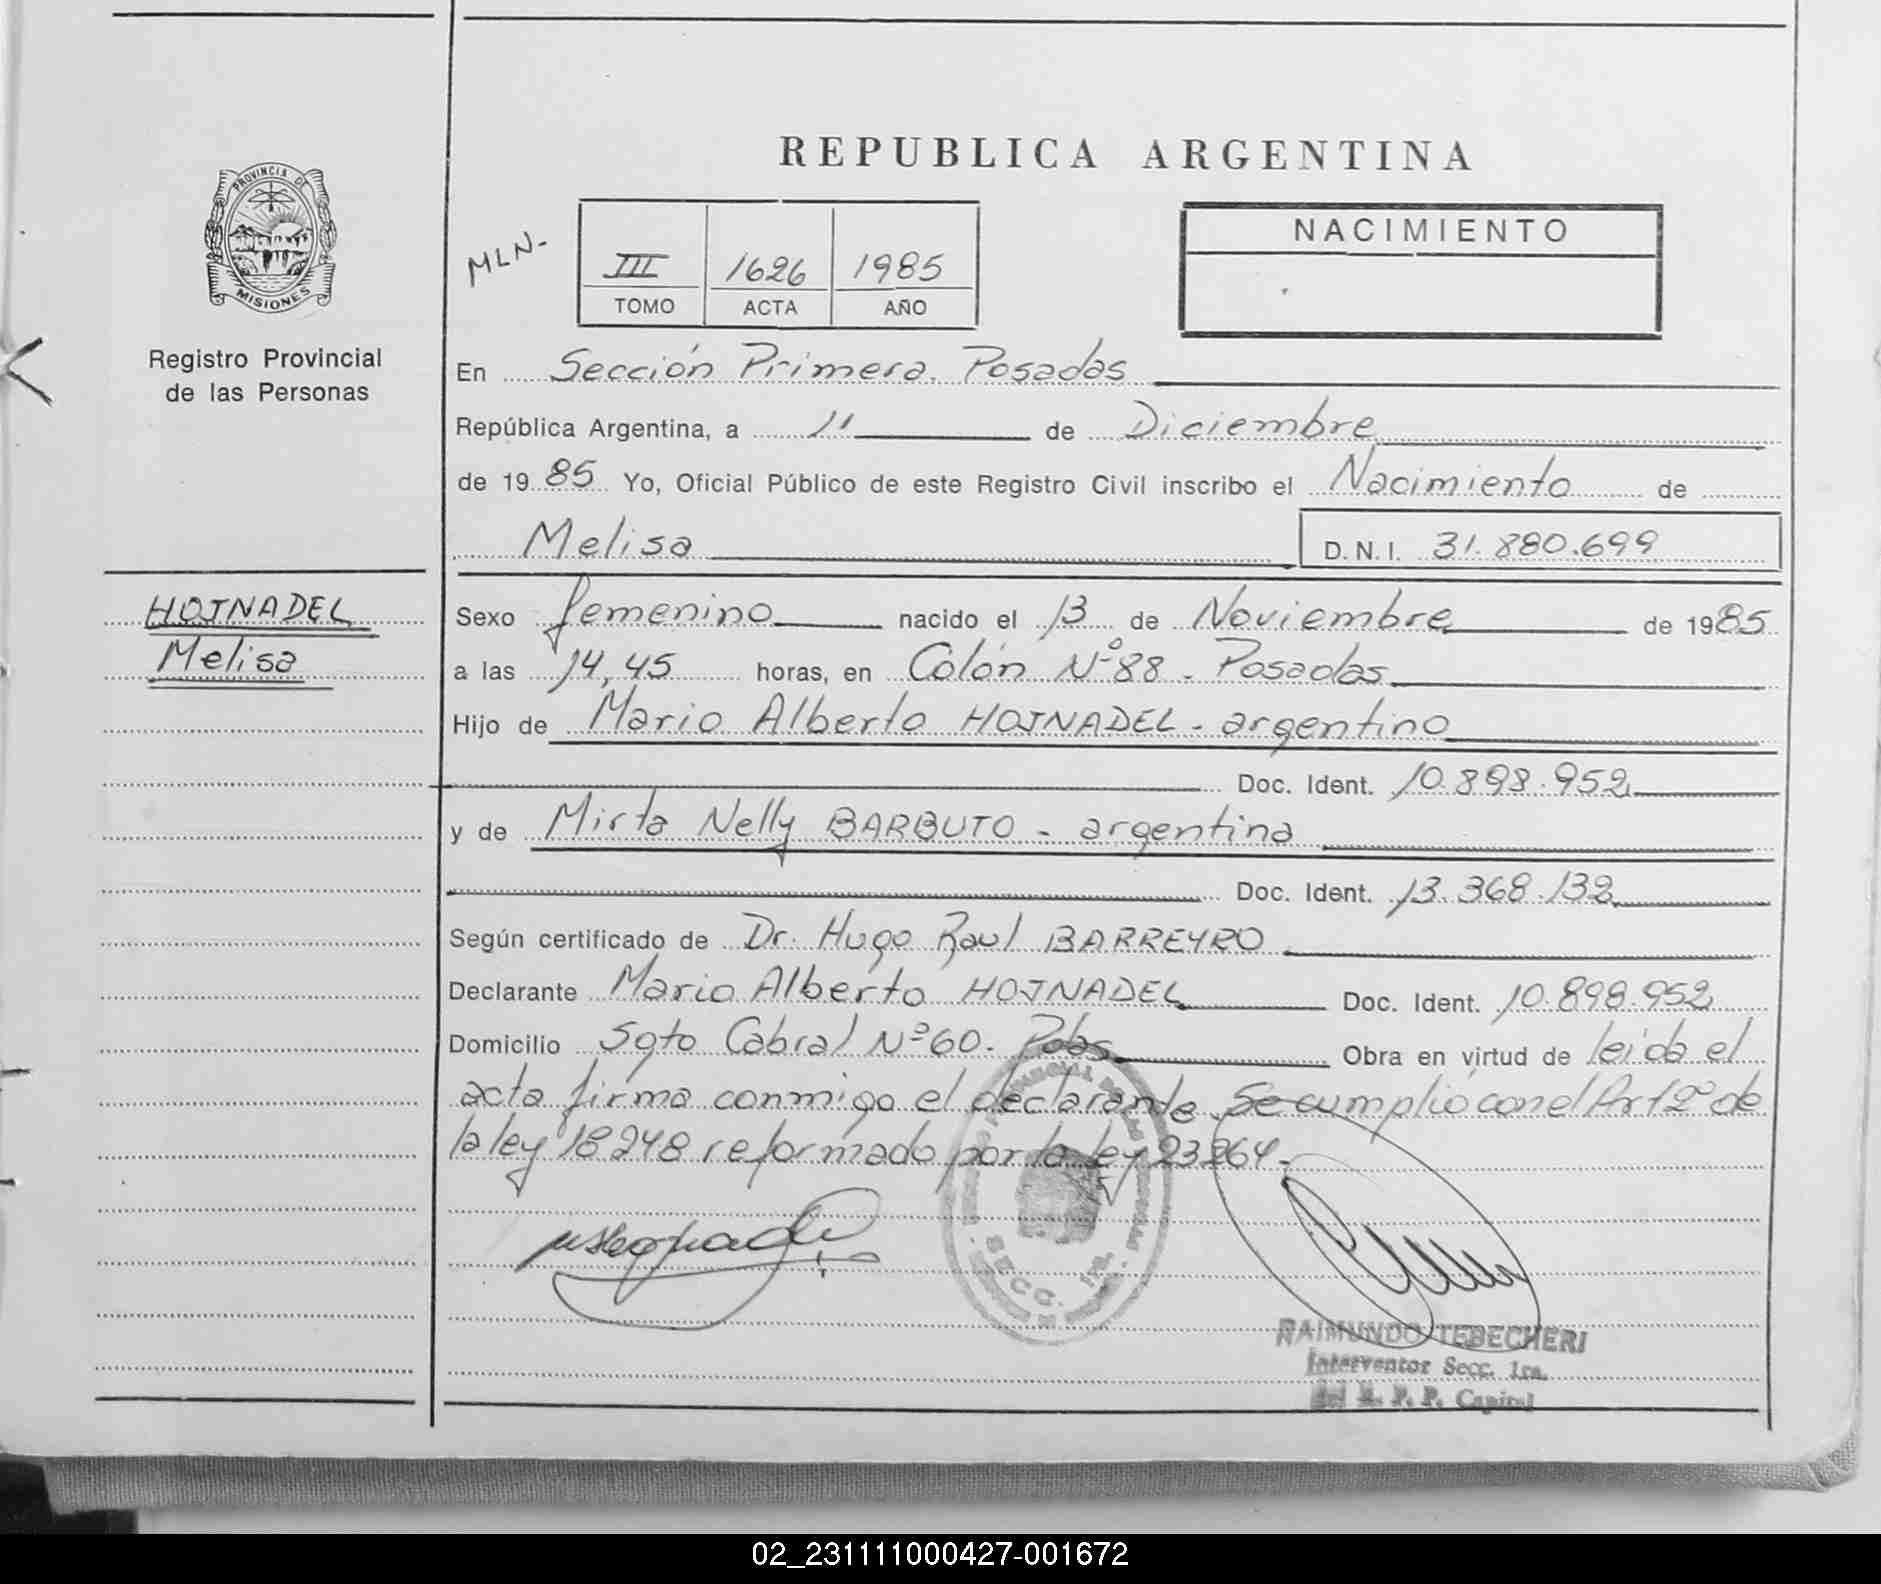 REPUBLICA ARGENTINA
PROVINCIA DE
MISIONES
Registro Provincial
de las Personas
MLN-
III 1626 1985
TOMO ACTA AÑO
NACIMIENTO
En Sección Primera. Posadas
República Argentina, a 11 de Diciembre
de 1985 Yo, Oficial Público de este Registro Civil inscribo el Nacimiento de
Melisa D.N.I. 31.880.699
HOJNADEL
Melisa
Sexo femenino nacido el 13 de Noviembre de 1985
a las 14,45 horas, en Colón Nº 88 - Posadas
Hijo de Mario Alberto HOJNADEL - argentino
Doc. Ident. 10.898.952
y de Mirta Nelly BARBUTO - argentina
Doc. Ident. 13.368.132
Según certificado de Dr. Hugo Raul BARREYRO
Declarante Mario Alberto HOJNADEL Doc. Ident. 10.898.952
Domicilio Sgto Cabral Nº 60. Pdas Obra en virtud de leida el
acta firma conmigo el declarante. Se cumplió con el Art 2º de
la ley 18248 reformado por la ley 23264-
SECC. 1ra.
RAIMUNDO TEBECHERI
Interventor Secc. 1ra.
del R. P. P. Capital
02_231111000427-001672